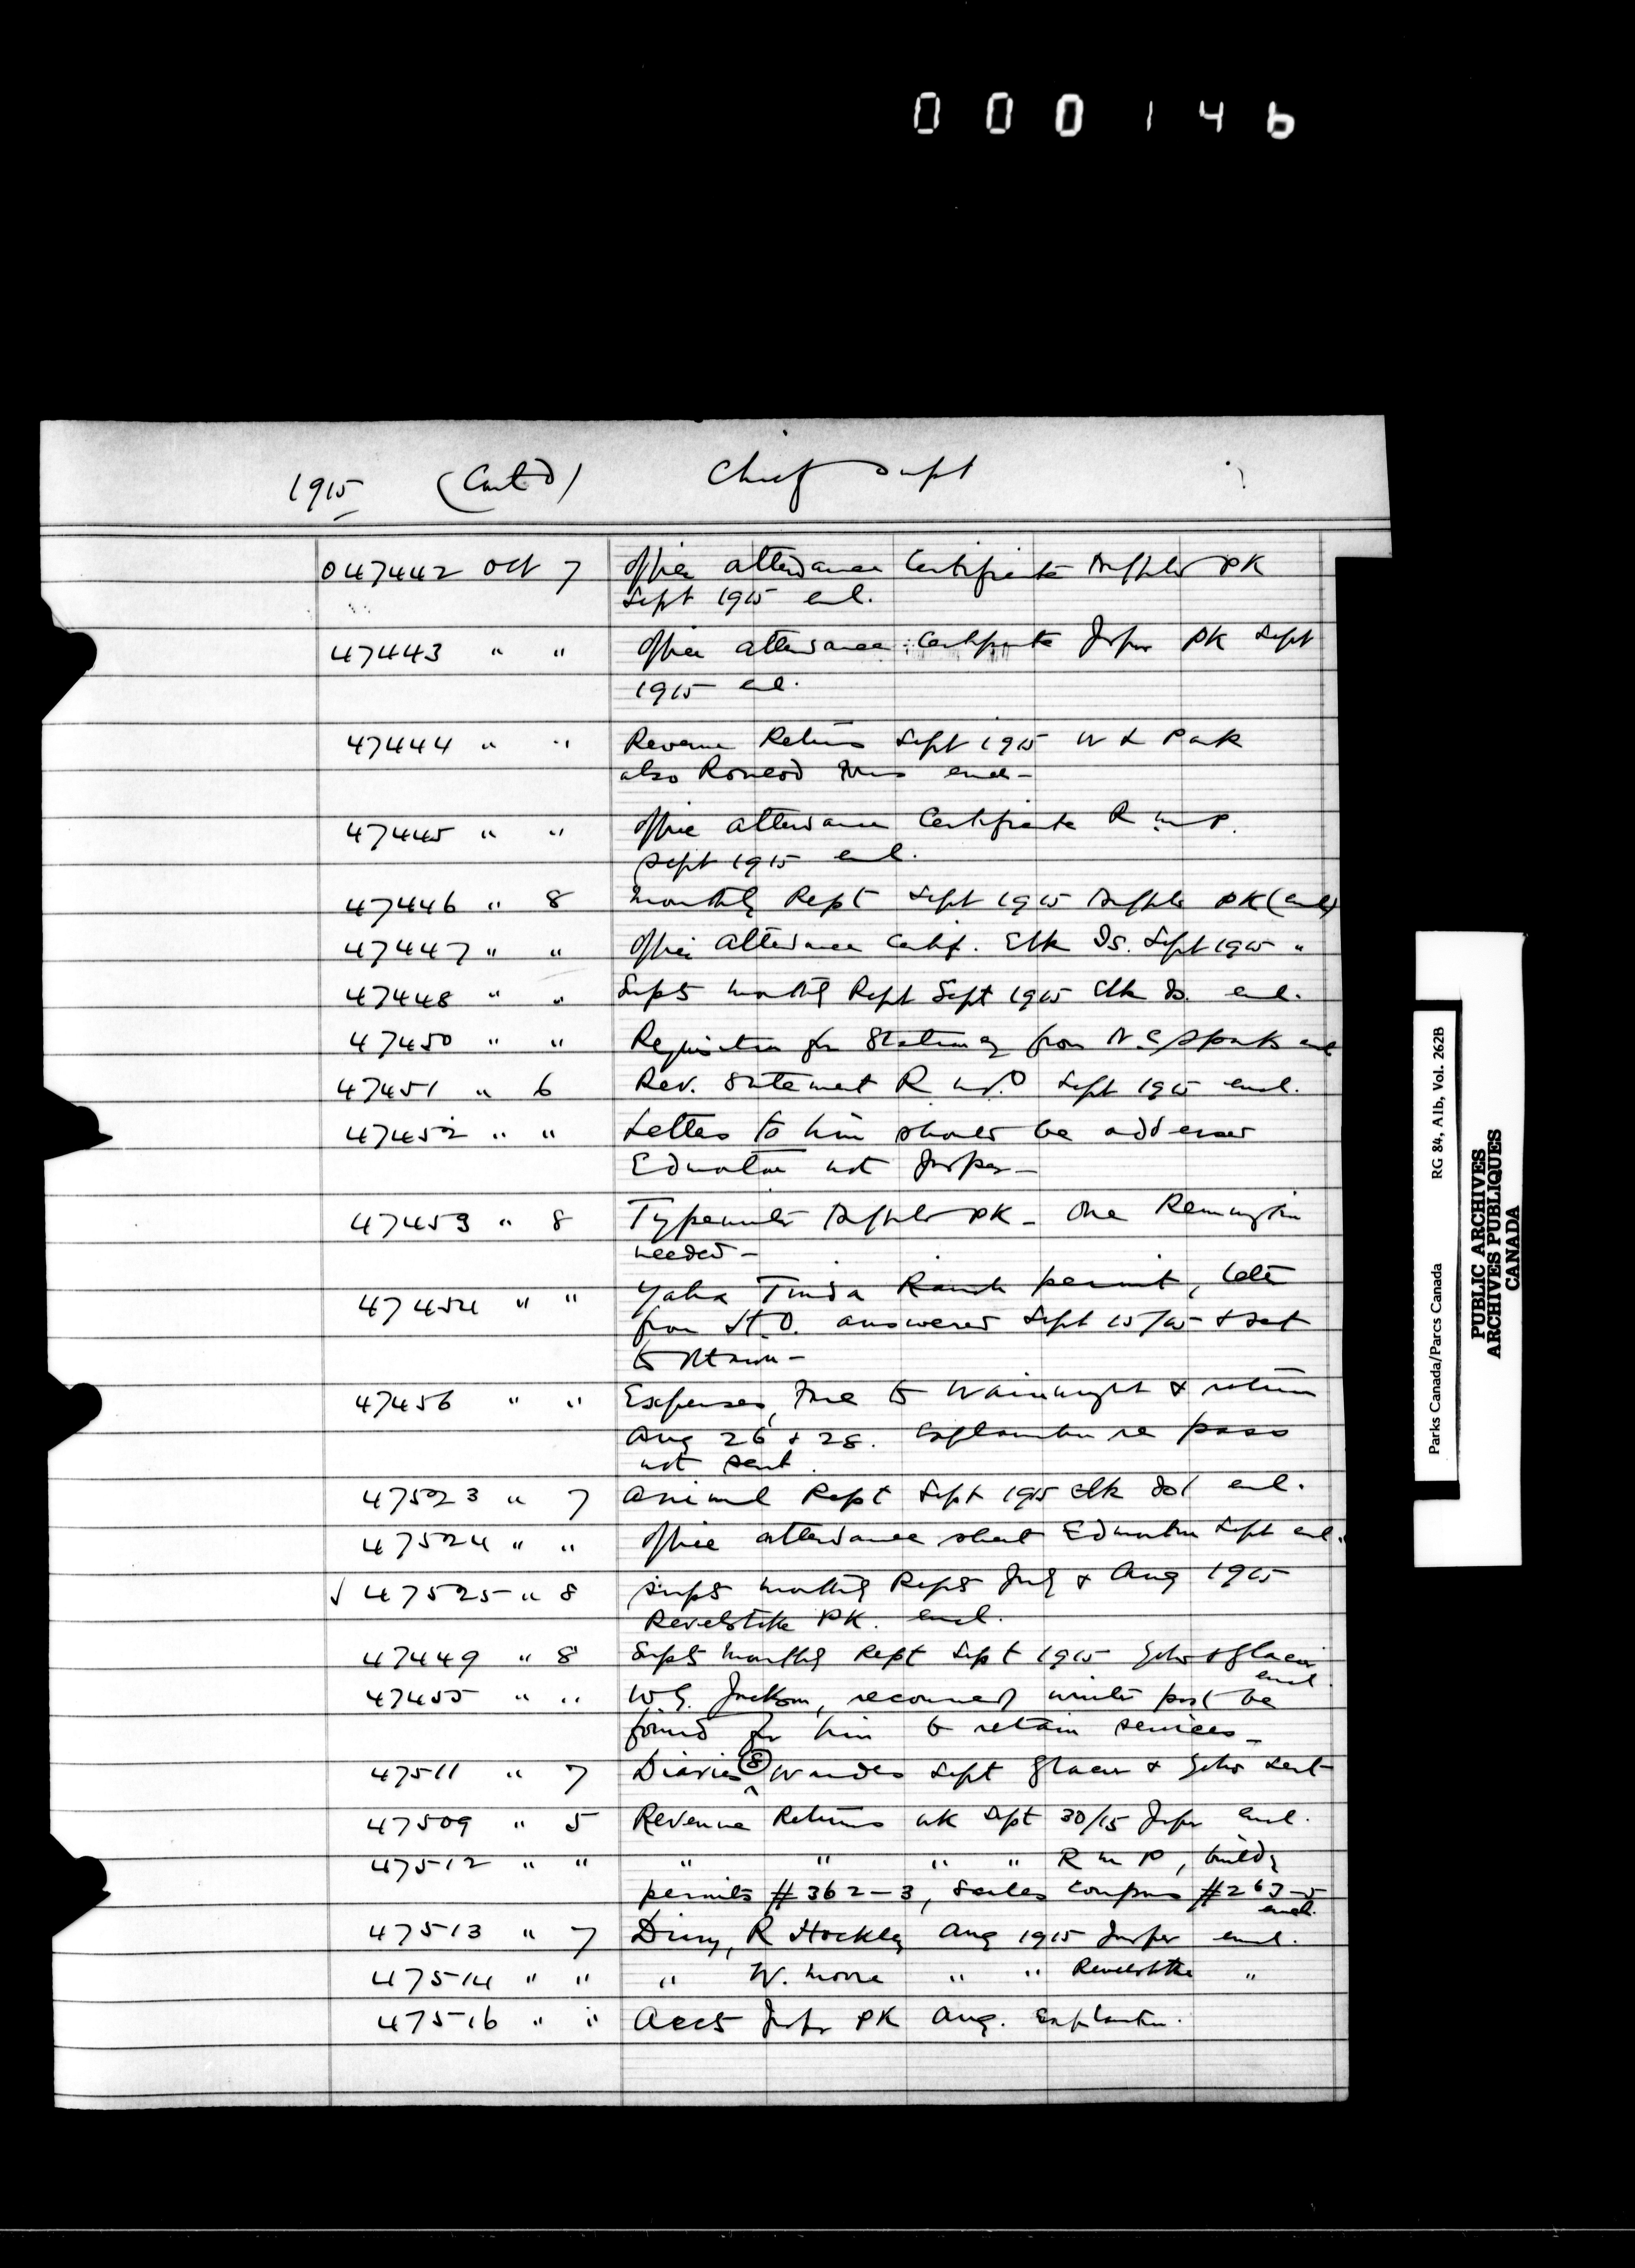 000146
1915 (Cont'd) Chief Supt
047442 Oct 7 Office attendance Certificate Buffalo PK
Sept 1915 encl.
47443 " " Office attendance Certificate Jasper PK Sept
1915 encl.
47444 " " Revenue Returns Sept 1915 W L Park
also encl-
47445 " " Office attendance Certificate R M P.
Sept 1915 encl.
47446 " 8 Monthly Rept Sept 1915 Buffalo PK (encl)
47447 " " Office attendance Certif. Elk Is. Sept 1915 "
47448 " " Supts monthly Rept Sept 1915 Elk Is. encl.
47450 " " Requisition for Stationery from encl
47451 " 6 Rev. Statement R M P Sept 1915 encl.
47452 " " Letters to him should be addressed
Edmonton not Jasper-
47453 " 8 Typewriter Buffalo PK - One Remington
needed-
47454 " " Yaha Tinda Ranch permit, letter
from H.O. answered Sept 15/15 & sent
to Ottawa-
47456 " " Expenses, to Wainwright & return
Aug 26 & 28. Explanation re pass
not sent.
47523 " 7 Animal Rept Sept 1915 Elk Isl encl.
47524 " " Office attendance sheet Edmonton Sept encl.
√ 47525 " 8 Supts monthly Repts July & Aug 1915
Revelstoke PK. encl.
47449 " 8 Supts monthly Rept Sept 1915 Yoho & Glacier
encl.
47455 " " W.G. Jackson, recommend winter post be
found for him to retain services-
47511 " 7 Diaries (8) Wardens Sept Glacier & Yoho sent
47509 " 5 Revenue Returns wk Sept 30/15 Jasper encl.
47512 " " " " " " R M P, buildg
permits #362-3, Scales Coupons #263-5
encl.
47513 " 7 Diary, R Hockley Aug 1915 Jasper encl.
47514 " " " W. Moore " " Revelstoke "
47516 " " Accts Jasper PK Aug. Explanation.
Parks Canada/Parcs Canada RG 84, A1b, Vol. 262B
PUBLIC ARCHIVES
ARCHIVES PUBLIQUES
CANADA